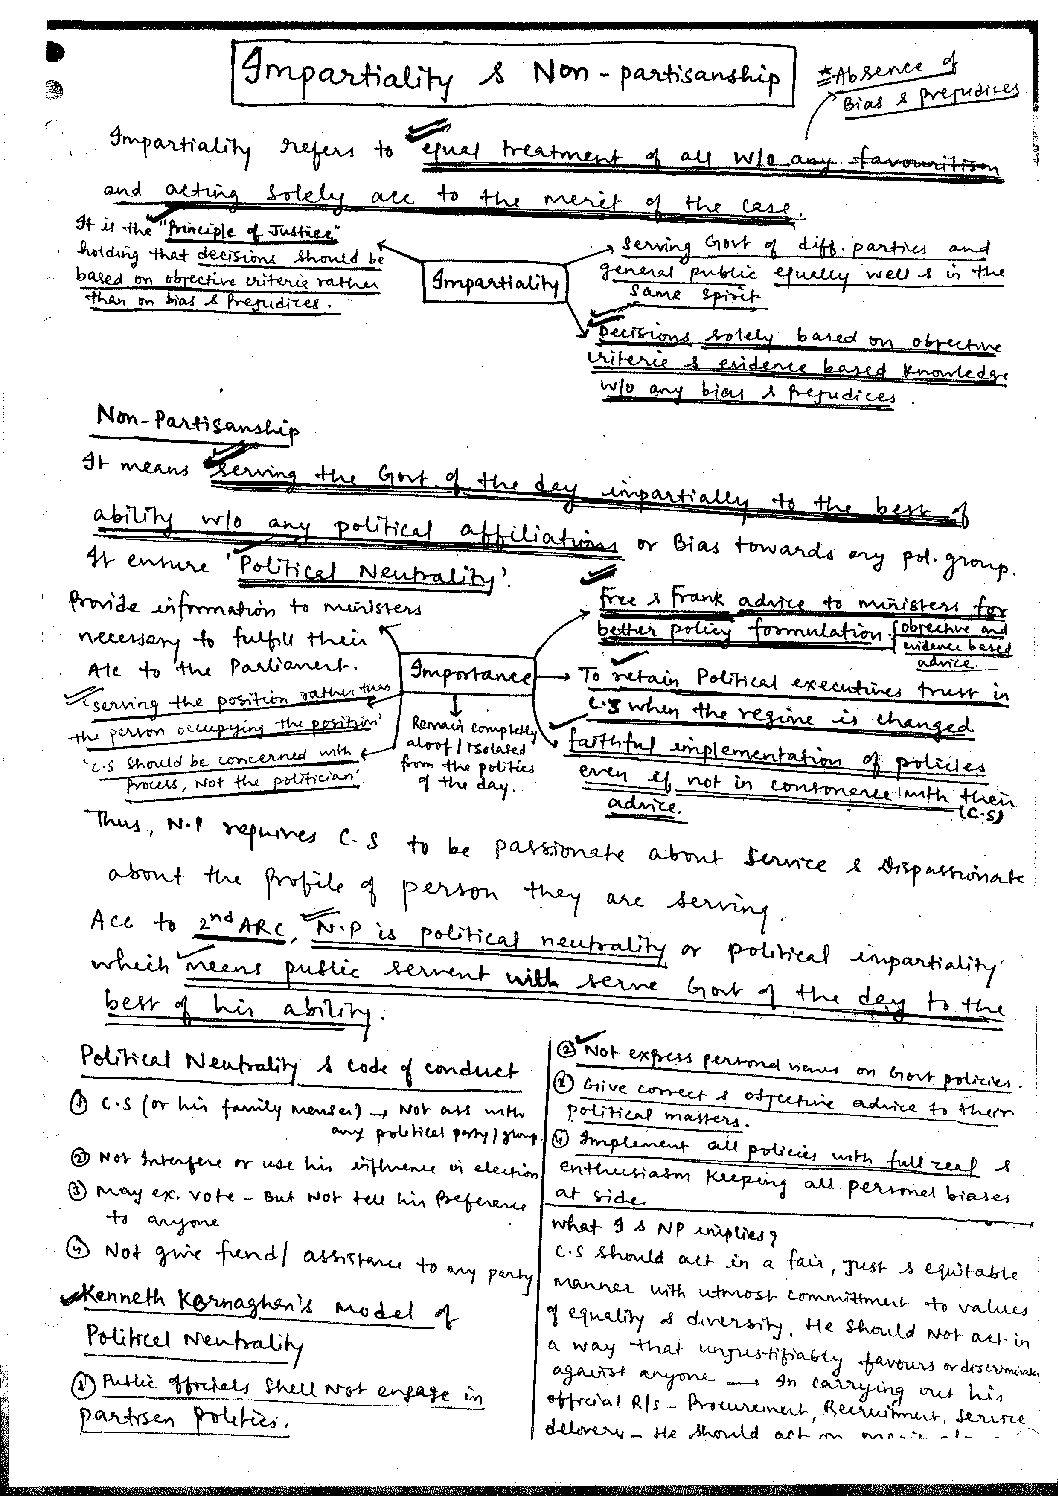 Impartiality & Non-partisanship
= Absence of
Bias & prejudices
Impartiality refers to equal treatment of all w/o any favouritism
and acting solely acc to the merit of the case.
It is the "Principle of Justice"
holding that decisions should be
based on objective criteria rather
than on bias & prejudices.
Impartiality
serving Govt of diff. parties and
general public equally well & in the
same spirit
Decisions solely based on objective
criteria & evidence based knowledge
w/o any bias & prejudices.
Non-Partisanship
It means serving the Govt. of the day impartially to the best of
ability w/o any political affiliations or Bias towards any pol. group.
It ensure 'Political Neutrality'.
Provide information to ministers
necessary to fulfill their
A/c to the Parliament.
'serving the position rather than
the person occupying the position'
'C.S should be concerned with
process, Not the politician'
Importance
Remain completely
aloof / isolated
from the politics
of the day.
Free & Frank advice to ministers for
better policy formulation (objective and
evidence based
advice
To retain Political executives trust in
C.S when the regime is changed
faithful implementation of policies
even if not in consonance with their
(C.S)
advice.
Thus, N.P requires C.S to be passionate about service & Dispassionate
about the profile of person they are serving.
Acc to 2nd ARC, N.P is political neutrality or political impartiality
which means public servant will serve Govt of the day to the
best of his ability.
Political Neutrality & code of conduct
① C.S (or his family member) → Not ass with
any political party/group.
② Not Interfere or use his influence in election
③ may ex. vote - But Not tell his Preference
to anyone
④ Not give fund/ assistance to any party
Kenneth Kernaghan's model of
Political Neutrality
① Public officials shall Not engage in
partisan politics.
② Not express personal views on Govt policies.
③ Give correct & objective advice to their
political masters.
④ Implement all policies with full zeal &
enthusiasm keeping all personal biases
at side.
What I & NP implies?
C.S should act in a fair, just & equitable
manner with utmost committment to values
of equality & diversity. He should Not act in
a way that unjustifiably favours or discriminates
against anyone → In carrying out his
official R/s - Procurement, Recruitment, service
delivery - He should act on